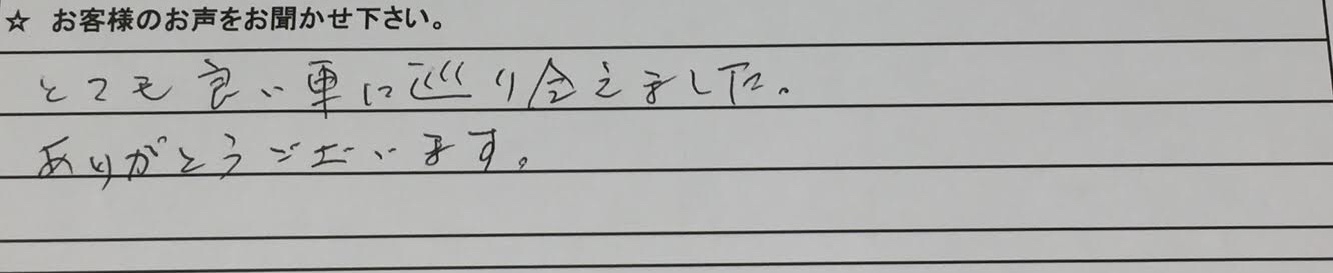 ☆ お客様のお声をお聞かせ下さい。
とても良い車に巡り会えました。
ありがとうございます。